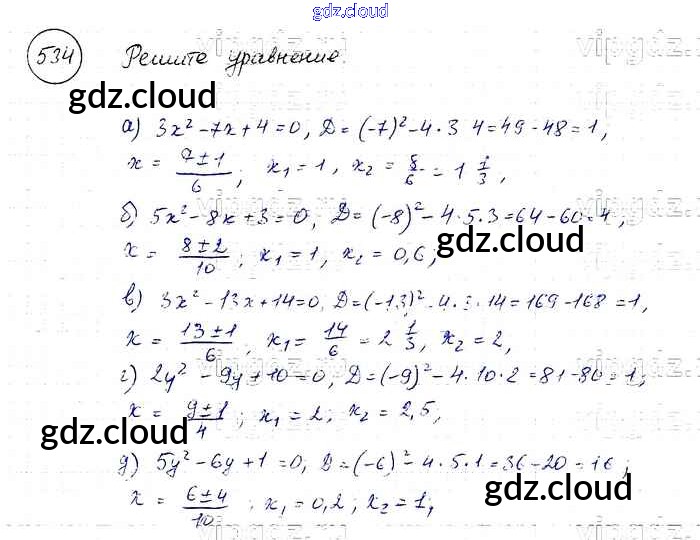 gdz.cloud
534 Решите уравнение.
gdz.cloud
а) 3x² - 7x + 4 = 0, D = (-7)² - 4 · 3 4 = 49 - 48 = 1,
x = 7 ± 1 / 6 ; x₁ = 1, x₂ = 8/6 = 1 1/3,
б) 5x² - 8x + 3 = 0, D = (-8)² - 4 · 5 · 3 = 64 - 60 = 4,
gdz.cloud
x = 8 ± 2 / 10 ; x₁ = 1, x₂ = 0,6,
в) 3x² - 13x + 14 = 0, D = (-13)² - 4 · 3 · 14 = 169 - 168 = 1,
x = 13 ± 1 / 6 ; x₁ = 14/6 = 2 1/3, x₂ = 2,
г) 2y² - 9y + 10 = 0, D = (-9)² - 4 · 10 · 2 = 81 - 80 = 1;
x = 9 ± 1 / 4 ; x₁ = 2, x₂ = 2,5,
gdz.cloud
д) 5y² - 6y + 1 = 0, D = (-6)² - 4 · 5 · 1 = 36 - 20 = 16;
gdz.cloud
x = 6 ± 4 / 10 ; x₁ = 0,2; x₂ = 1;